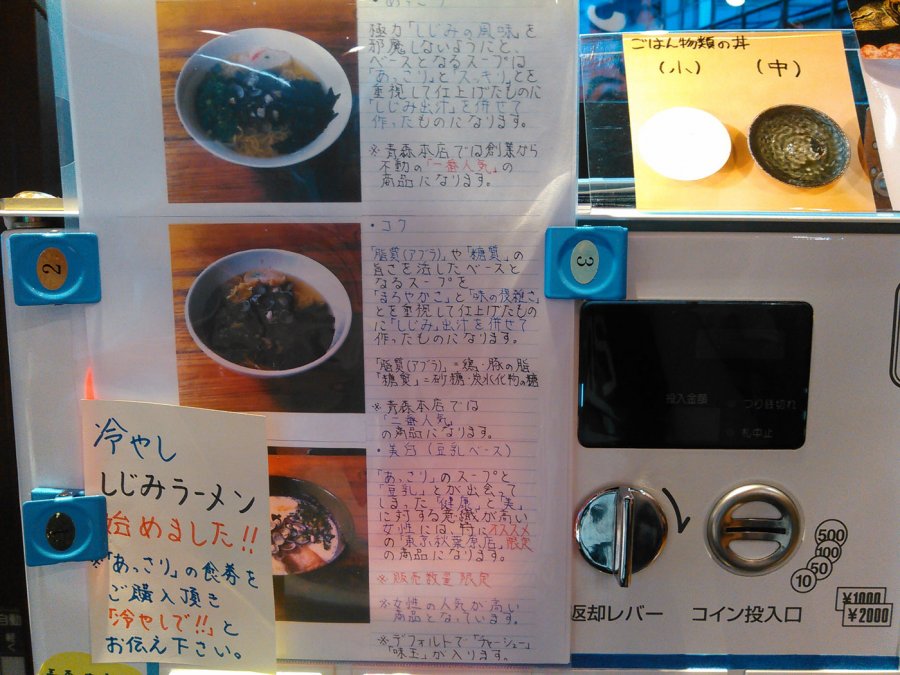 極力「しじみの風味」を
邪魔しないようにと、
ベースとなるスープは
「あっさり」と「スッキリ」とを
重視して仕上げたものに
「しじみ出汁」を併せて
作ったものになります。
※青森本店では創業から
不動の「一番人気」の
商品になります。
・コク
「脂質(アブラ)」や「糖質」の
旨さを活したベースと
なるスープを
「まろやかさ」と「味の複雑さ」
とを重視して仕上げたもの
に「しじみ」出汁を併せて
作ったものになります。
「脂質(アブラ)」=鶏・豚の脂
「糖質」=砂糖・炭水化物の糖
※青森本店では
「二番人気」
の商品になります。
・美白(豆乳ベース)
「あっさり」のスープと
「豆乳」とが出会って
しまった「健康」と「美」
に対する意識が高い
女性には、特にオススメ
の「東京秋葉原店」限定
の商品になります。
※販売数量限定
※女性の人気が高い
商品となっています。
※デフォルトで「チャーシュー」
「味玉」が入ります。
冷やし
しじみラーメン
始めました!!
※「あっさり」の食券を
ご購入頂き
「冷やしで!!」と
お伝え下さい。
2
3
1
ごはん物類の丼
(小) (中)
投入金額
つり銭切れ
札中止
返却レバー
コイン投入口
500
100
50
10
¥1000
¥2000
自動